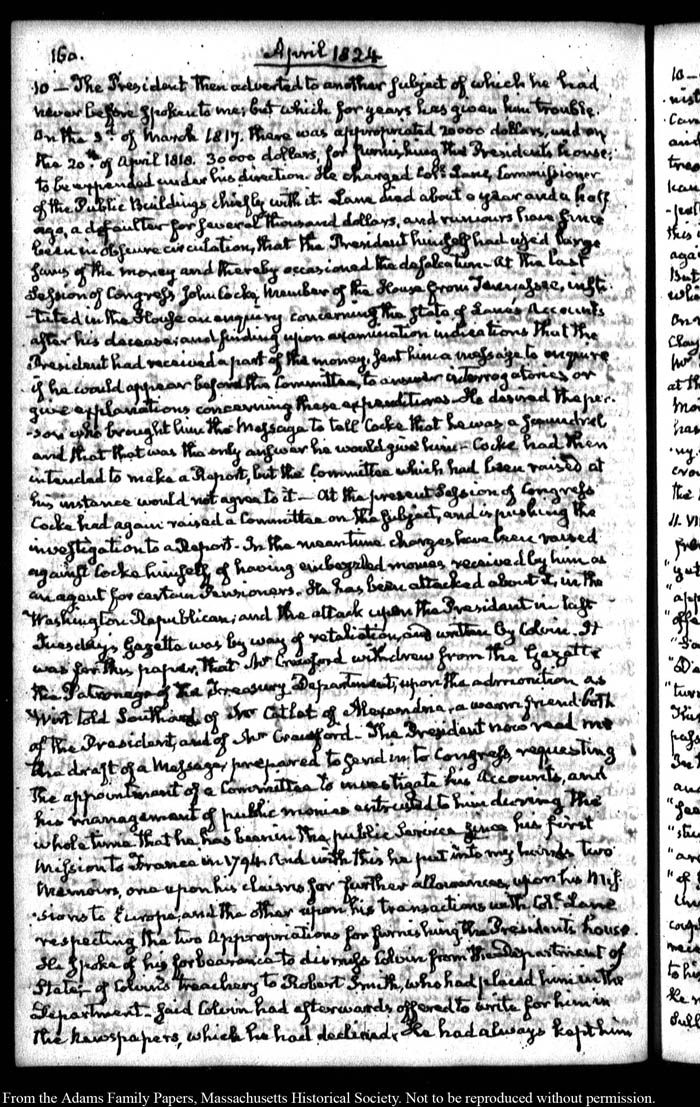 160.
April 1824
10 — The President then adverted to another subject of which he had
never before spoken to me, but which for years has given him trouble.
On the 3d of March 1817. there was appropriated 20000 dollars, and on
the 20th of April 1818. 30000 dollars, for furnishing the President's house;
to be expended under his direction. He charged Coll. Lane, Commissioner
of the Public Buildings chiefly with it. Lane died about a year and a half
ago, a defaulter for several thousand dollars, and rumours have since
been in obscure circulation, that the President himself had used large
sums of the money and thereby occasioned the defalcation. At the last
Session of Congress John Cocke, Member of the House from Tennessee, insti-
-tuted in the House an enquiry concerning the state of Lane's Accounts
after his decease; and finding upon examination indications that the
President had received a part of the money, sent him a message to enquire
if he would appear before the Committee, to answer interrogatories or
give explanations concerning these expenditures. He desired the per-
-son who brought him the Message to tell Cocke that he was a scoundrel
and that that was the only answer he would give him — Cocke had then
intended to make a Report, but the Committee which had been raised at
his instance would not agree to it — At the present Session of Congress
Cocke had again raised a Committee on the subject, and is pushing the
investigation to a Report. In the meantime charges have been raised
against Cocke himself of having embezzled monies received by him as
an agent for certain Pensioners. He has been attacked about it, in the
Washington Republican; and the attack upon the President in last
Tuesday's Gazette was by way of retaliation, and written by Colvin. It
was for this paper, that Mr Crawford withdrew from the Gazette
the Patronage of the Treasury Department, upon the admonition as
Wirt told Southard, of Mr Catlet of Alexandria, a warm friend both
of the President, and of Mr Crawford — The President now read me
the draft of a Message, prepared to send in, to Congress, requesting
the appointment of a Committee to investigate his Accounts, and
his management of public monies entrusted to him during the
whole time that he has been in the public Service since his first
Mission to France in 1794. And with this he put into my hands two
Memoirs, one upon his claims for further allowances, upon his Mis-
-sions to Europe, and the other upon his transactions with Coll. Lane
respecting the two Appropriations for furnishing the President's house.
He spoke of his forbearance to dismiss Colvin from the Department of
State; — of Colvin's treachery to Robert Smith, who had placed him in the
Department — said Colvin had afterwards offered to write for him in
the Newspapers, which he had declined. He had always kept him
From the Adams Family Papers, Massachusetts Historical Society. Not to be reproduced without permission.